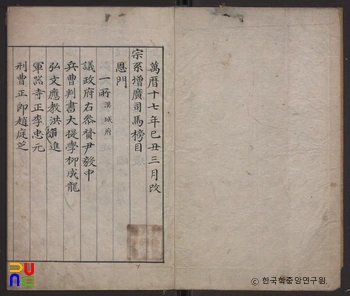 萬曆十七年己丑三月改
宗系增廣司馬榜目
恩門
一所 漢城府
議政府右參贊尹毅中
兵曹判書大提學柳成龍
弘文應教洪
進
軍器寺正李忠元
刑曹正郎趙庭芝
PUNE
© 한국학중앙연구원